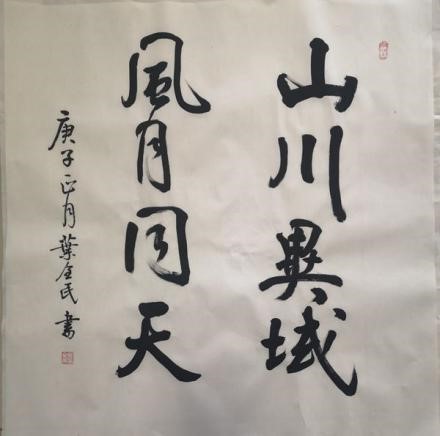 山川異域
風月同天
庚子正月葉全民書